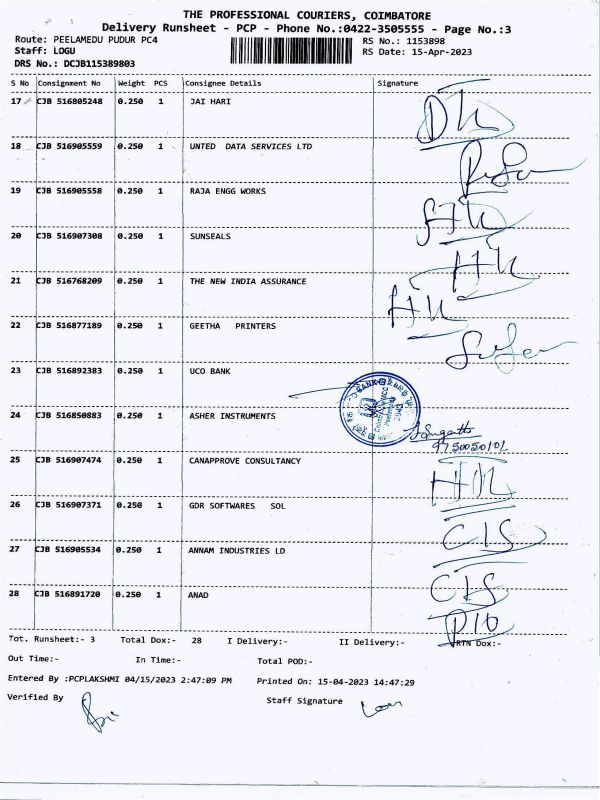 THE PROFESSIONAL COURIERS, COIMBATORE
Delivery Runsheet - PCP - Phone No.:0422-3505555 - Page No.:3
Route: PEELAMEDU PUDUR PC4 RS No.: 1153898
Staff: LOGU RS Date: 15-Apr-2023
DRS No.: DCJB115389803
S No Consignment No Weight PCS Consignee Details Signature
17 CJB 516805248 0.250 1 JAI HARI
18 CJB 516905559 0.250 1 UNTED DATA SERVICES LTD
19 CJB 516905558 0.250 1 RAJA ENGG WORKS
20 CJB 516907308 0.250 1 SUNSEALS
21 CJB 516768209 0.250 1 THE NEW INDIA ASSURANCE
22 CJB 516877189 0.250 1 GEETHA PRINTERS
23 CJB 516892383 0.250 1 UCO BANK
24 CJB 516850883 0.250 1 ASHER INSTRUMENTS
25 CJB 516907474 0.250 1 CANAPPROVE CONSULTANCY
26 CJB 516907371 0.250 1 GDR SOFTWARES SOL
27 CJB 516905534 0.250 1 ANNAM INDUSTRIES LD
CIS
28 CJB 516891720 0.250 1 ANAD
CIS
Tot. Runsheet:- 3 Total Dox:- 28 I Delivery:- II Delivery:- RTN Dox:-
Out Time:- In Time:- Total POD:-
Entered By :PCPLAKSHMI 04/15/2023 2:47:09 PM Printed On: 15-04-2023 14:47:29
Verified By Staff Signature